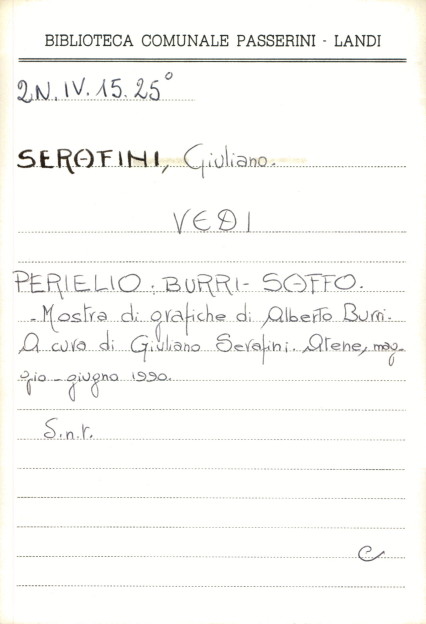 BIBLIOTECA COMUNALE PASSERINI - LANDI
2N.IV.15.25°
SERAFINI, Giuliano.
VEDI
PERIELIO : BURRI - SAFFO.
- Mostra di grafiche di Alberto Burri.
A cura di Giuliano Serafini. Atene, mag-
gio - giugno 1990.
S.n.t.
C